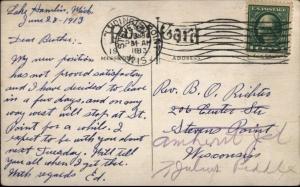 Lake Hamlin, Mich
June 28 - 1913
Dear Brother;
My new position
has not proved satisfactory
and I have decided to leave
in a few days, and on my
way west will stop at St.
Point for a while. I
expect to be with you about
next Tuesday. Will tell
you all when I get there.
With regards Ed.
Card
ADDRESS
WIS.
Rev. B. O. Richter
206 Center Str
Stevens Point
Wisconsin
Amherst Jct